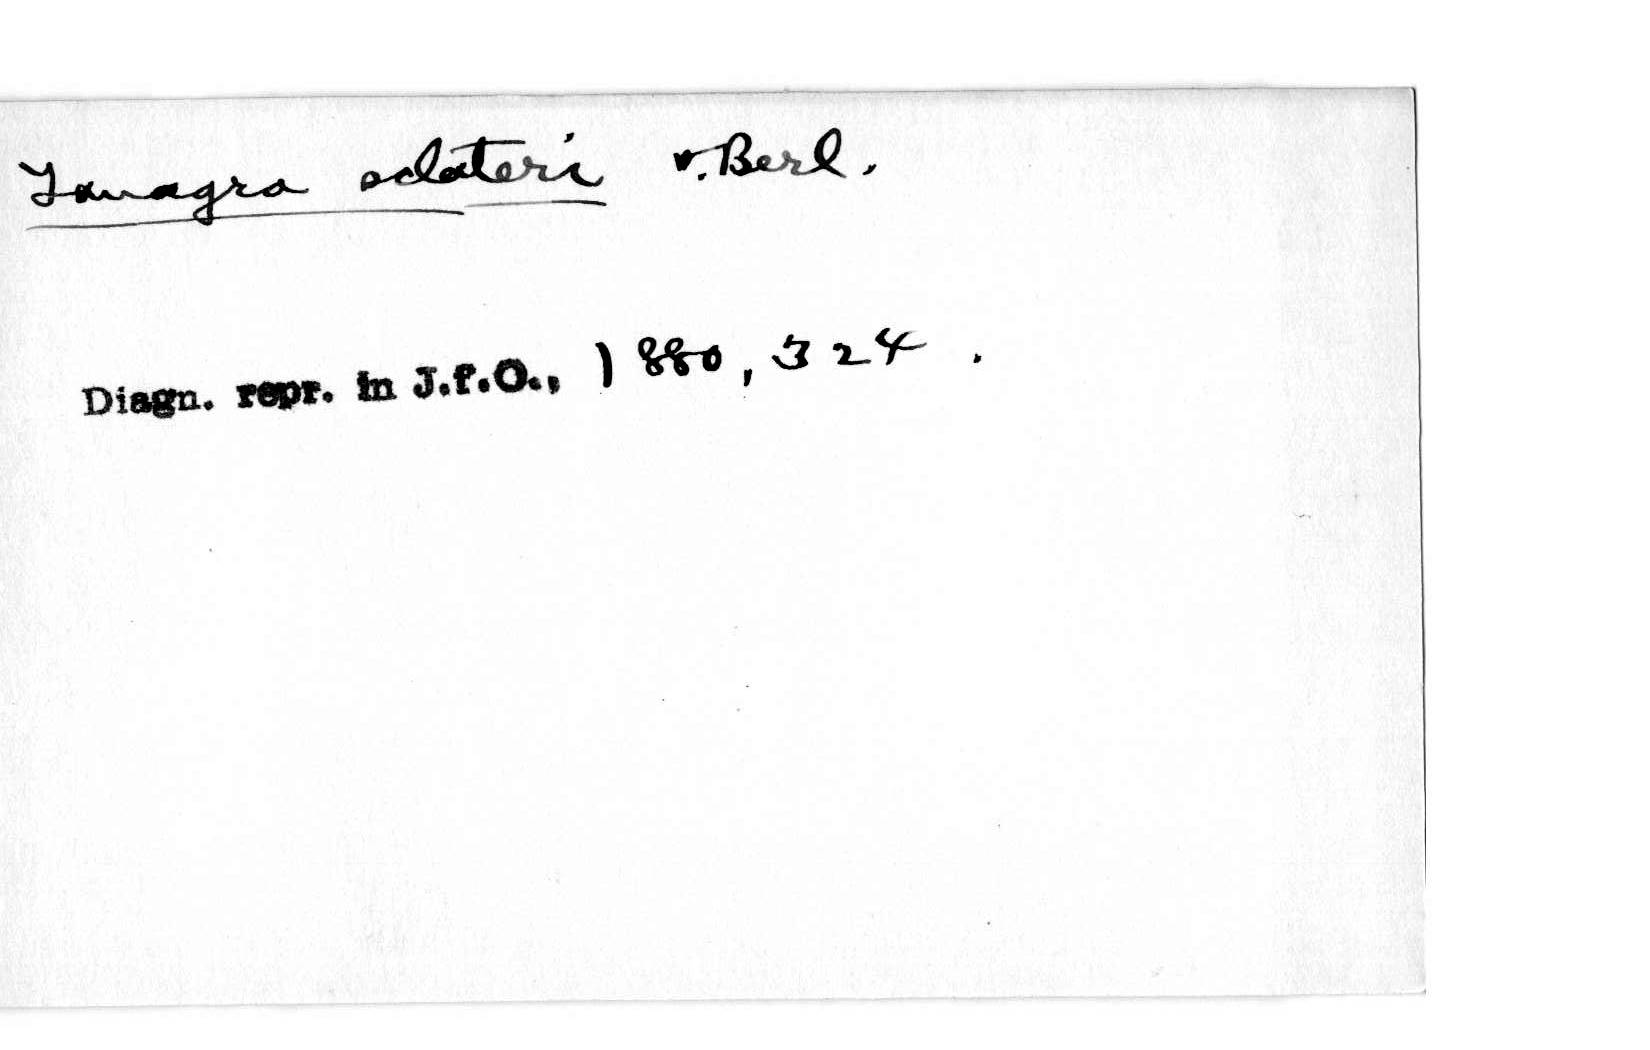 Tanagra sclateri v. Berl.
Diagn. repr. in J.f.O., 1880, 324.